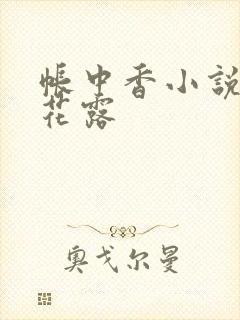 帳中香小說
花露
奧戈尔曼